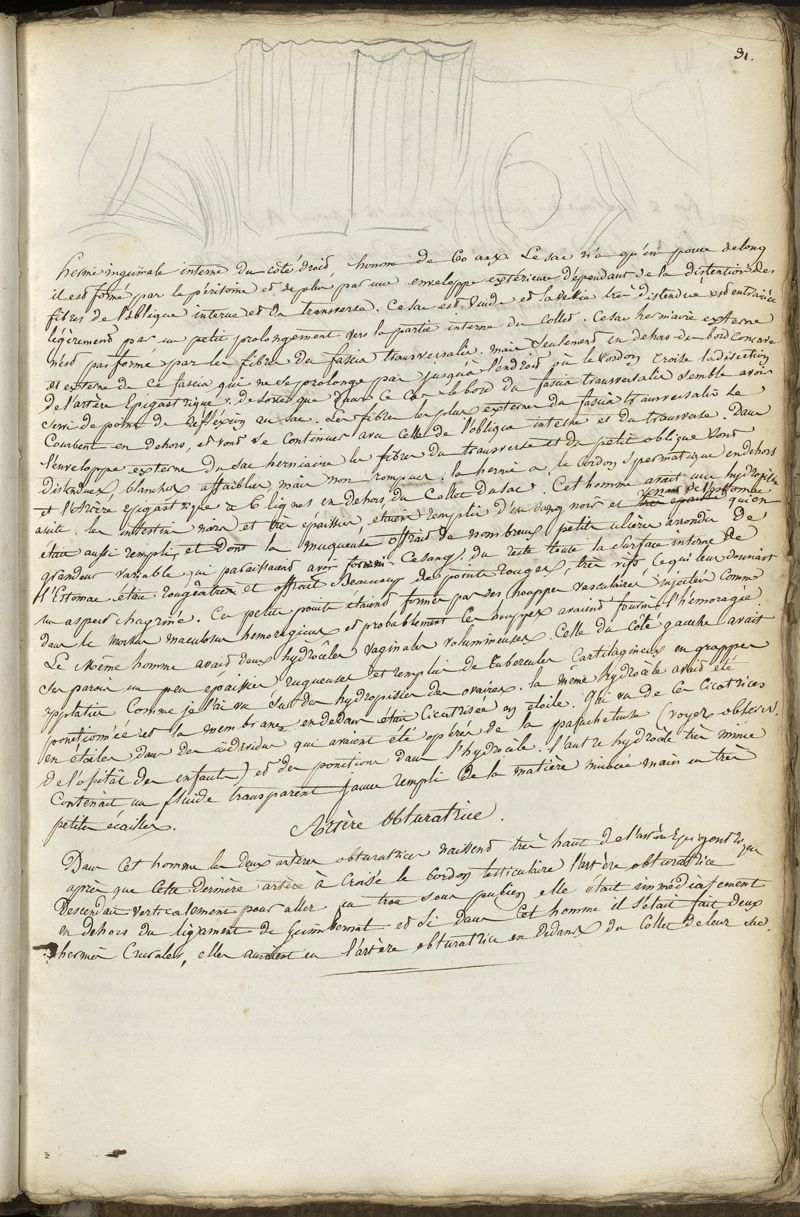 31.
hernie inguinale interne du côté droit, homme de 60 ans. Le sac n'a qu'un pouce de long
il est formé par le péritoine et de plus par une enveloppe extérieure dépendant de la distention des
fibres de l'oblique interne et du transverse. Ce sac est vuide et la vessie très distendue est entrainée
légèrement par un petit prolongement vers la partie interne du collet. Ce sac herniaire externe
n'est pas formé par les fibres du fascia transversalis, mais seulement en dehors du bord concave
et externe de ce fascia qui ne se prolonge pas jusqu'à l'endroit où le cordon croise la direction
de l'artère Epigastrique. de sorte que dans ce cas le bord du fascia transversalis semble avoir
servi de point de réflexion au sac. Les fibres les plus externes du fascia transversalis se
Courbent en dehors, et vont se continuer avec celles de l'oblique interne et du transverse. Dans
l'enveloppe externe du sac herniaire les fibres du transverse et du petit oblique sont
distendues, blanches affaiblies mais non rompues. la hernie a le cordon spermatique en dehors
et l'artère épigastrique à 6 lignes en dehors du Collet du sac. Cet homme avait une hydropisie
ascite. les intestins noirs et très épaissis, étaient remplis d'un sang noir et l'estomac qui en
était aussi rempli, et dont la muqueuse offrait de nombreux petits ulcères arrondis de
grandeur variable qui paraissaient avoir fourni ce sang. du reste toute la surface interne de
l'Estomac était rougeâtre et offrait beaucoup de points rouges, très vifs, ce qui leur donnait
un aspect chagriné. Ces petits points étaient formés par des houppes vasculaires injectées comme
dans le morbus maculosus hemoragicus et probablement ces houppes avaient fourni l'hémoragie.
Le même homme avait deux hydrocèles vaginales volumineuses. Celle du côté gauche avait
ses parois un peu épaissies rugueuses et remplies de tubercules cartilagineux en grappes
applaties comme je l'ai vu dans des hydropisies des ovaires. la même hydrocèle avait été
ponctionnée et la membrane en dedans était cicatrisée en étoile. J'ai vu de ces cicatrices
en étoiles dans des individus qui avaient été opérés de la paracenthèse (voyez observ.
de l'opital des enfants) et des ponctions dans l'hydrocèle. l'autre hydrocèle très mince
Contenait un fluide transparent jaune rempli de la matière nacrée mais en très
petites écailles.
Artère Obturatrice.
Dans cet homme les deux artères obturatrices naissent très haut de l'artère épigastrique
après que cette dernière artère à croisé le cordon testiculaire l'artère obturatrice
Descendait verticalement pour aller au trou sous pubien, elle était immédiatement
en dehors du ligament de Gimbernat et si dans cet homme il s'était fait deux
hernies Crurales, elles auraient eu l'artère obturatrice en dedans du Collet de leur sac.